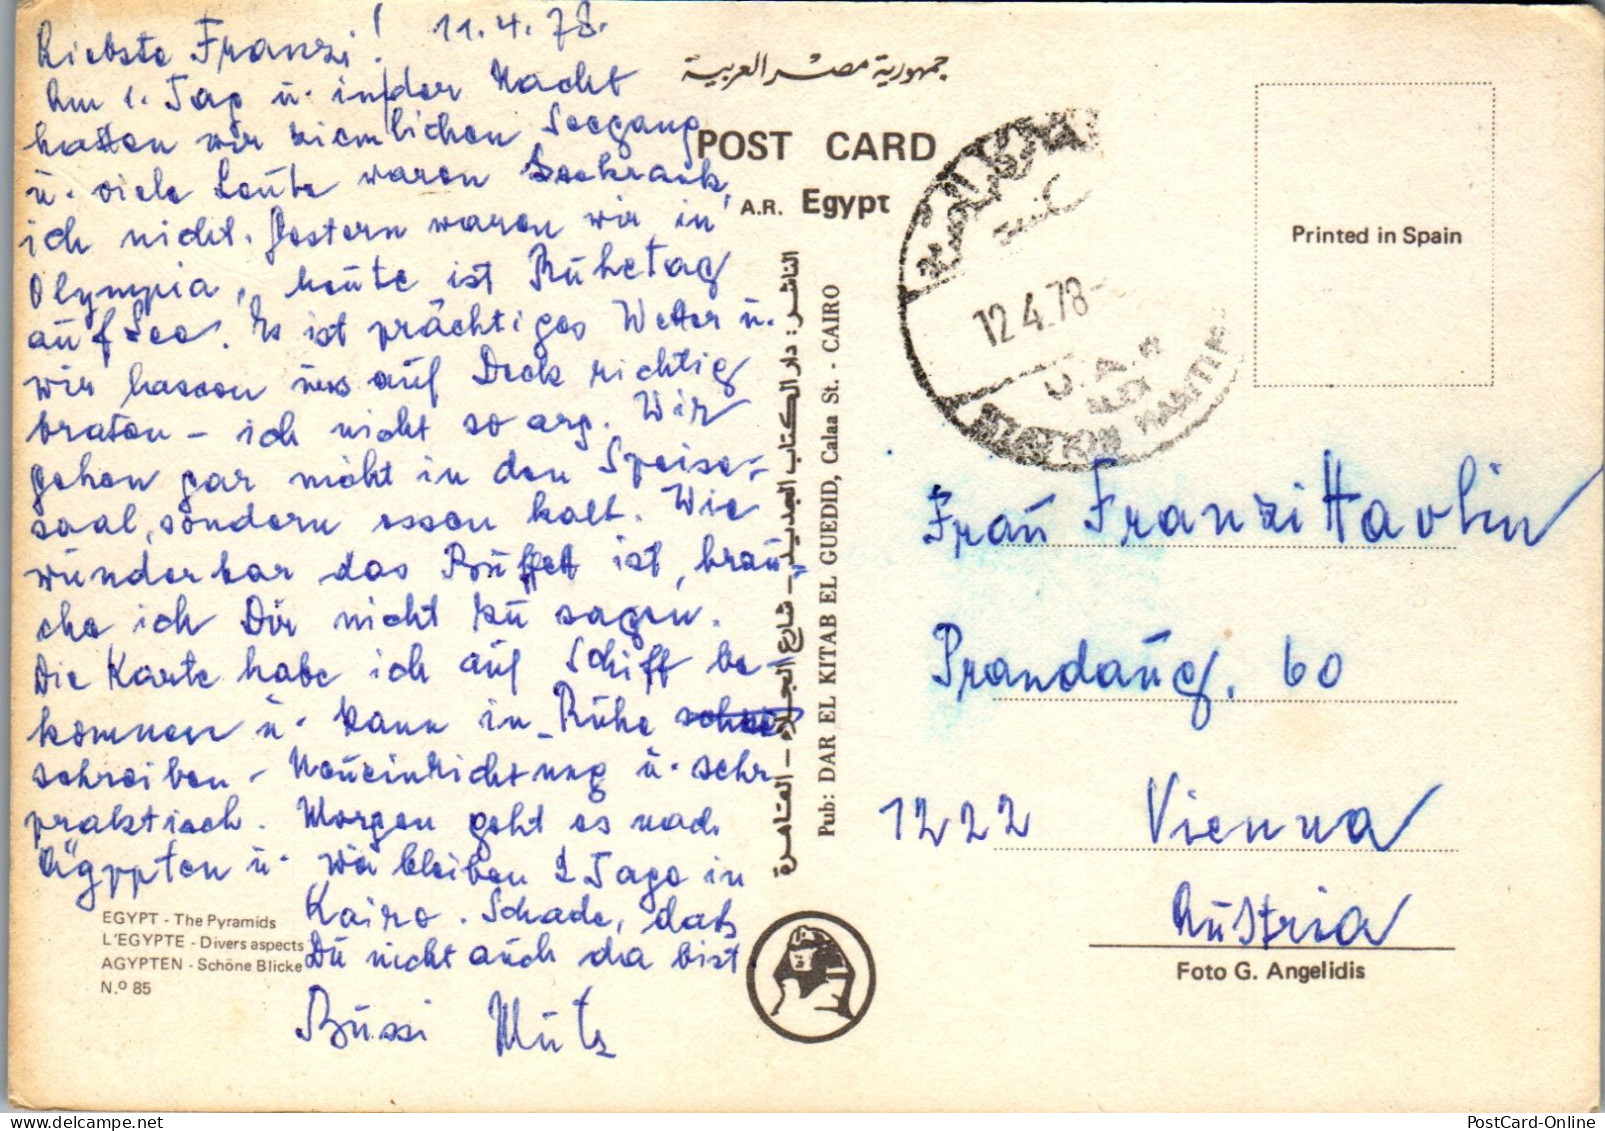 Liebste Franzi! 11.4.78.
Am 1. Tag u. in der Nacht
hatten wir ziemlichen Seegang
u. viele Leute waren Seekrank,
ich nicht. Gestern waren wir in
Olympia, heute ist Ruhetag
auf See. Es ist prächtiges Wetter u.
wir lassen uns auf Deck richtig
braten – ich nicht so arg. Wir
gehen gar nicht in den Speise-
saal, sondern essen kalt. Wie
wunderbar das Büffett ist, brau-
che ich Dir nicht zu sagen.
Die Karte habe ich auf Schiff be-
kommen u. kann in Ruhe
schreiben – Neueinrichtung u. sehr
praktisch. Morgen geht es nach
Ägypten u. wir bleiben 2 Tage in
Kairo. Schade, daß
Du nicht auch da bist
Bussi Mutz
EGYPT - The Pyramids
L'EGYPTE - Divers aspects
AGYPTEN - Schöne Blicke
N.º 85
جمهورية مصر العربية
POST CARD
A.R. Egypt
الناشر: دار الكتاب الجديد - شارع الجلاء - القاهرة
Pub: DAR EL KITAB EL GUEDID, Calaa St. - CAIRO
12.4.78
Printed in Spain
Frau Franzi Havlin
Prandaug. 60
1222 Vienna
Austria
Foto G. Angelidis
PostCard-Online